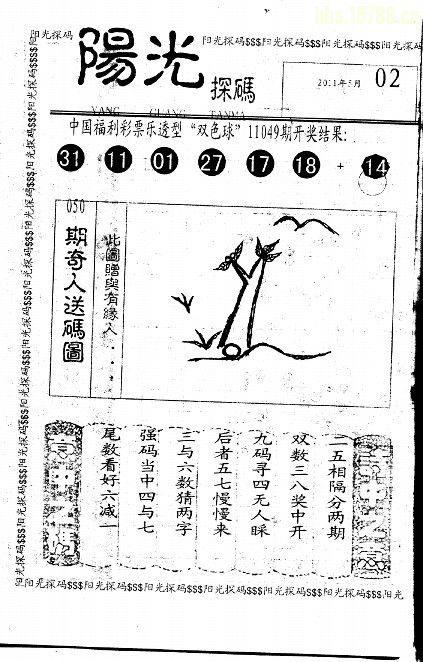 bbs.16788.cn
阳光探码
阳光探码$$$阳光探码$$$阳光探码$$$阳光探码
陽光探碼
2011年5月 02
YANG GUANG TANMA
中国福利彩票乐透型“双色球”11049期开奖结果:
31 11 01 27 17 18 + 14
050
期奇人送碼圖
此圖贈與有緣人....
二五相隔分两期
双数三八奖中开
九码寻四无人睬
后者五七慢慢来
三与六数猜两字
强码当中四与七
尾数看好六减一
阳光探码$$$阳光探码$$$阳光探码$$$阳光探码$$$阳光探码$$$阳光探码$$$阳光